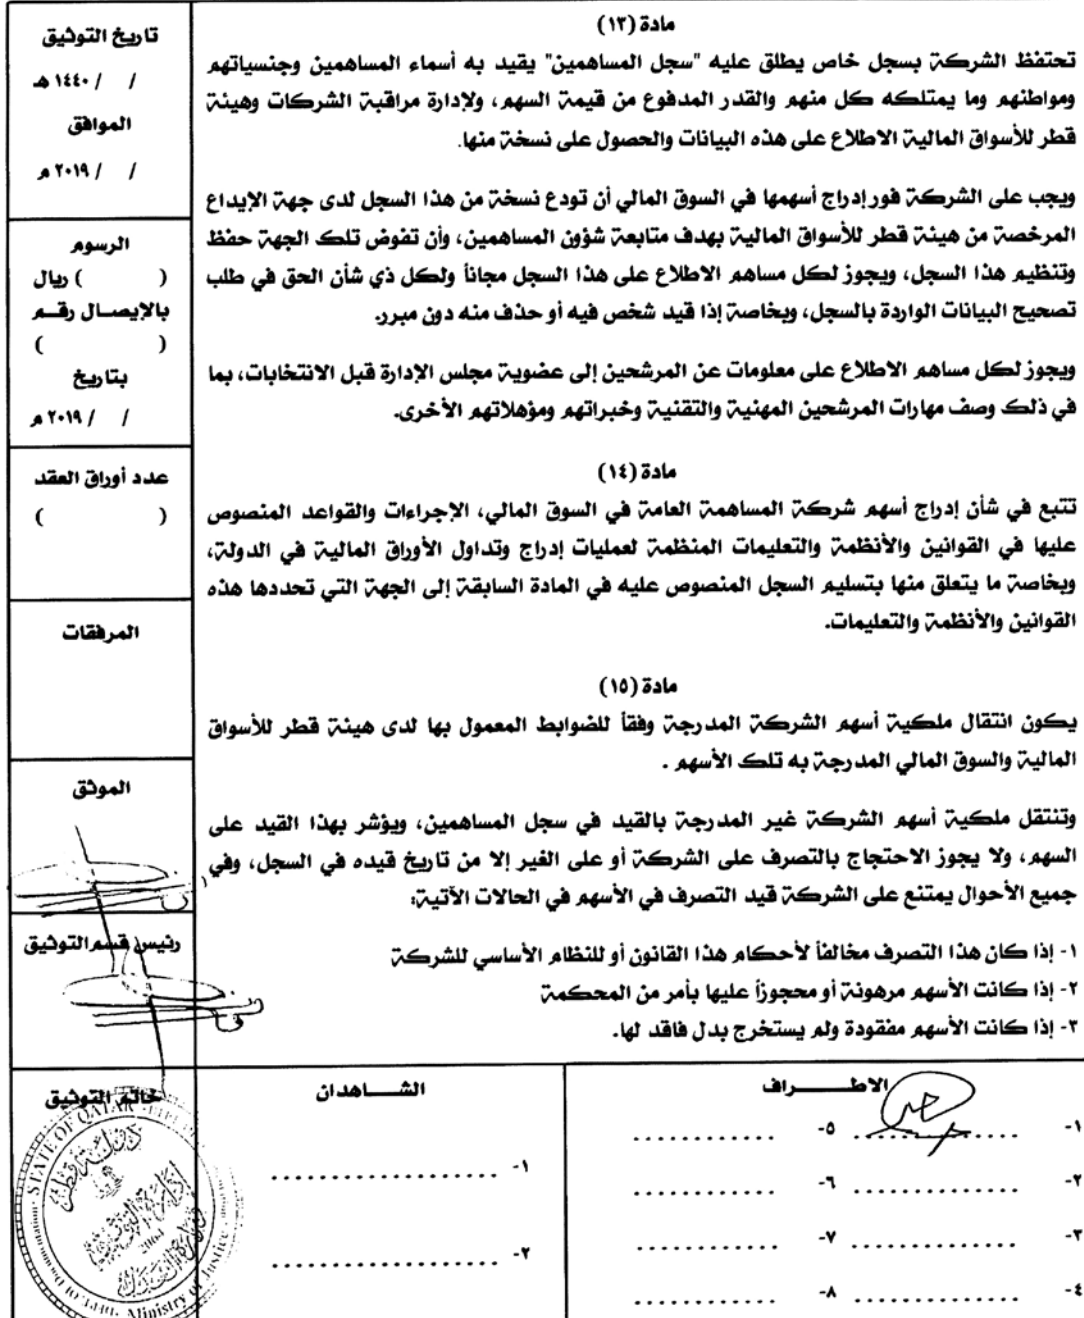 مادة (١٣)
تحتفظ الشركة بسجل خاص يطلق عليه "سجل المساهمين" يقيد به أسماء المساهمين وجنسياتهم
ومواطنهم وما يمتلكه كل منهم والقدر المدفوع من قيمة السهم، ولإدارة مراقبة الشركات وهيئة
قطر للأسواق المالية الاطلاع على هذه البيانات والحصول على نسخة منها.
ويجب على الشركة فور إدراج أسهمها في السوق المالي أن تودع نسخة من هذا السجل لدى جهة الإيداع
المرخصة من هيئة قطر للأسواق المالية بهدف متابعة شؤون المساهمين، وأن تفوض تلك الجهة حفظ
وتنظيم هذا السجل، ويجوز لكل مساهم الاطلاع على هذا السجل مجاناً ولكل ذي شأن الحق في طلب
تصحيح البيانات الواردة بالسجل، وبخاصة إذا قيد شخص فيه أو حذف منه دون مبرر.
ويجوز لكل مساهم الاطلاع على معلومات عن المرشحين إلى عضوية مجلس الإدارة قبل الانتخابات، بما
في ذلك وصف مهارات المرشحين المهنية والتقنية وخبراتهم ومؤهلاتهم الأخرى.
مادة (١٤)
تتبع في شأن إدراج أسهم شركة المساهمة العامة في السوق المالي، الإجراءات والقواعد المنصوص
عليها في القوانين والأنظمة والتعليمات المنظمة لعمليات إدراج وتداول الأوراق المالية في الدولة،
وبخاصة ما يتعلق منها بتسليم السجل المنصوص عليه في المادة السابقة إلى الجهة التي تحددها هذه
القوانين والأنظمة والتعليمات.
مادة (١٥)
يكون انتقال ملكية أسهم الشركة المدرجة وفقاً للضوابط المعمول بها لدى هيئة قطر للأسواق
المالية والسوق المالي المدرجة به تلك الأسهم .
وتنتقل ملكية أسهم الشركة غير المدرجة بالقيد في سجل المساهمين، ويؤشر بهذا القيد على
السهم، ولا يجوز الاحتجاج بالتصرف على الشركة أو على الغير إلا من تاريخ قيده في السجل، وفي
جميع الأحوال يمتنع على الشركة قيد التصرف في الأسهم في الحالات الآتية:
١- إذا كان هذا التصرف مخالفاً لأحكام هذا القانون أو للنظام الأساسي للشركة
٢- إذا كانت الأسهم مرهونة أو محجوزاً عليها بأمر من المحكمة
٣- إذا كانت الأسهم مفقودة ولم يستخرج بدل فاقد لها.
تاريخ التوثيق
/ / ١٤٤٠ هـ
الموافق
/ / ٢٠١٩ م
الرسوم
( ) ريال
بالإيصال رقم
( )
بتاريخ
/ / ٢٠١٩ م
عدد أوراق العقد
( )
المرفقات
الموثق
رئيس قسم التوثيق
خاتم التوثيق
STATE OF QATAR
دولة قطر
إدارة التوثيق
وزارة العدل
Ministry of Justice
الأطراف
١- .............. ٥- .............
٢- .............. ٦- .............
٣- .............. ٧- .............
٤- .............. ٨- .............
الشاهدان
١- ....................
٢- ....................